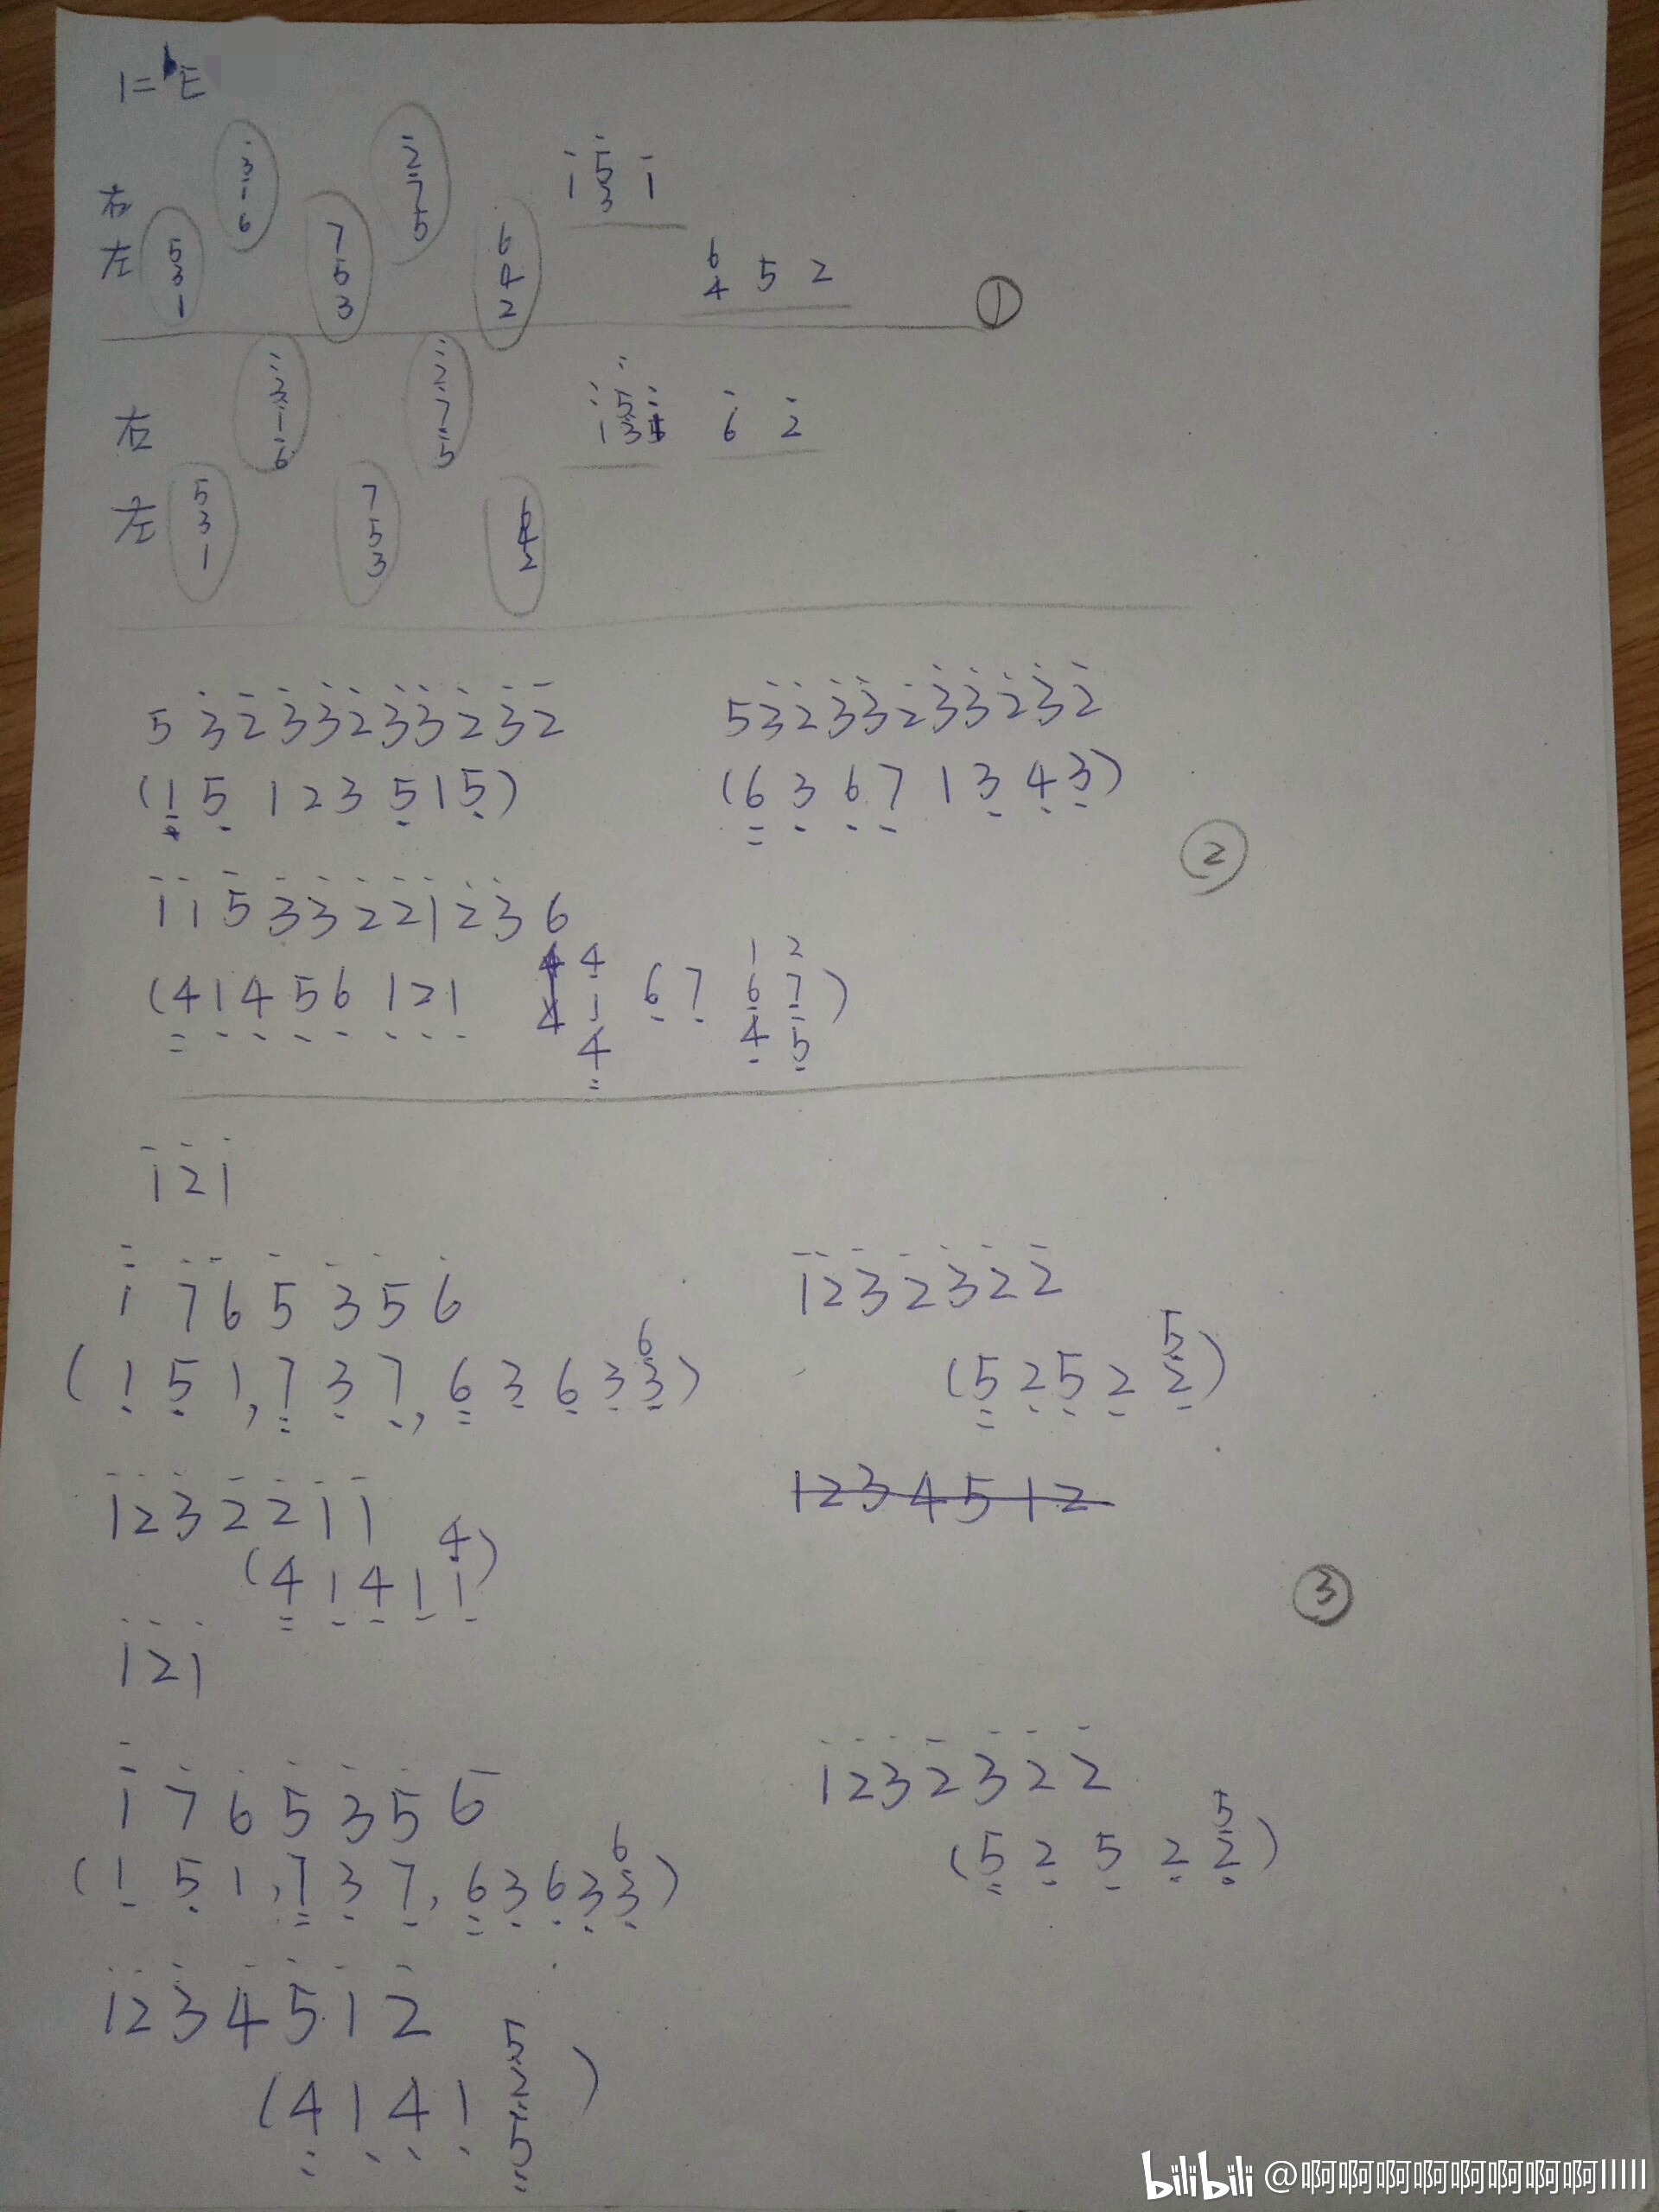 1=ᵇE
右 3 1 6  2 7 5  1 5 3 1
左 5 3 1  7 5 3  6 4 2  6 4 5 2
①
右 3 1 6  2 7 5  1 5 3  6 2
左 5 3 1  7 5 3  6 4 2
5 3 2 3 3 2 3 3 2 3 2  5 3 2 3 3 2 3 3 2 3 2
(1 5 1 2 3 5 1 5)  (6 3 6 7 1 3 4 3)
②
1 1 5 3 3 2 2 1 2 3 6
(4 1 4 5 6 1 2 1  4 1 4  6 7  1 6 4  2 7 5)
1 2 1
1 7 6 5 3 5 6  1 2 3 2 3 2 2
(1 5 1, 7 3 7, 6 3 6 3 6 3)  (5 2 5 2 5 2)
1 2 3 2 2 1 1  1 2 3 4 5 1 2
(4 1 4 1 4 1)
③
1 2 1
1 7 6 5 3 5 6  1 2 3 2 3 2 2
(1 5 1, 7 3 7, 6 3 6 3 6 3)  (5 2 5 2 5 2)
1 2 3 4 5 1 2
(4 1 4 1 5 2 5)
bilibili @啊啊啊啊啊啊啊啊lllll